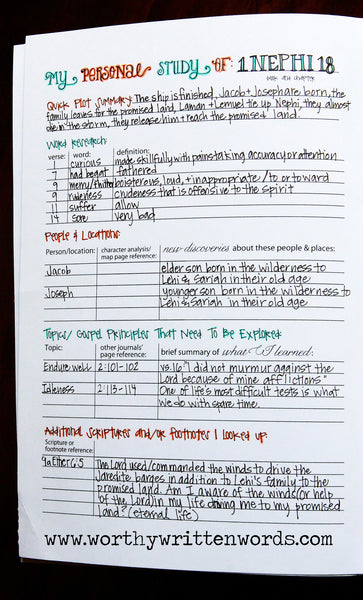 MY PERSONAL STUDY OF: 1 NEPHI 18
book and chapter
Quick Plot Summary: The ship is finished, Jacob + Joseph are born, the
family leaves for the promised land, Laman + Lemuel tie up Nephi, they almost
die in the storm, they release him + reach the promised land.
Word Research:
verse: word: definition:
1 curious made skillfully with painstaking accuracy or attention
7 had begat fathered
9 merry/thither boisterous, loud, + inappropriate / to or toward
9 rudeness crudeness that is offensive to the spirit
11 suffer allow
14 sore very bad
People & Locations:
Person/location: character analysis/ map page reference: new discoveries about these people & places:
Jacob elder son born in the wilderness to
Lehi & Sariah in their old age
Joseph younger son born in the wilderness to
Lehi & Sariah in their old age
Topics/ Gospel Principles That Need To Be Explored:
Topic: other journals' page reference: brief summary of what I learned:
Endure well 2:101-102 vs. 16 "I did not murmur against the
Lord because of mine afflictions"
Idleness 2:113-114 One of life's most difficult tests is what
we do with spare time.
Additional Scriptures and/or footnotes I looked up:
Scripture or
footnote reference:
9a Ether 6:5 The Lord used/commanded the winds to drive the
Jaredite barges in addition to Lehi's family to the
promised land. Am I aware of the winds (or help
of the Lord) in my life driving me to my promised
land? (eternal life)
www.worthywrittenwords.com